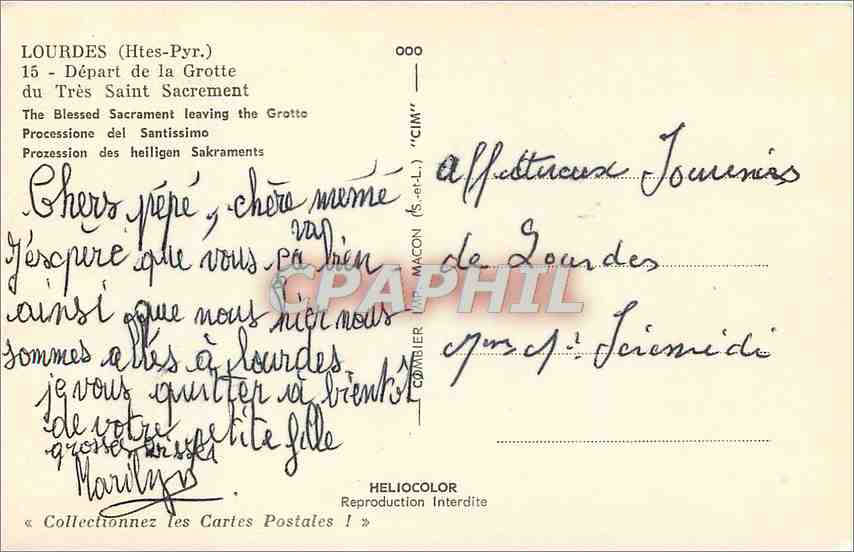 LOURDES (Htes-Pyr.)
15 - Départ de la Grotte
du Très Saint Sacrement
The Blessed Sacrament leaving the Grotto
Processione del Santissimo
Prozession des heiligen Sakraments
Chers pépé, chère mémé
J'éspère que vous ça bien
va
ainsi que nous hier nous
sommes allés à lourdes.
je vous quitter à bientôt
de votre petite fille
grosses
Marilyn
« Collectionnez les Cartes Postales ! »
COMBIER IMP. MACON (S.-et-L.) "CIM"
HELIOCOLOR
Reproduction Interdite
affectueux Souvenirs
de Lourdes
CPAPHIL